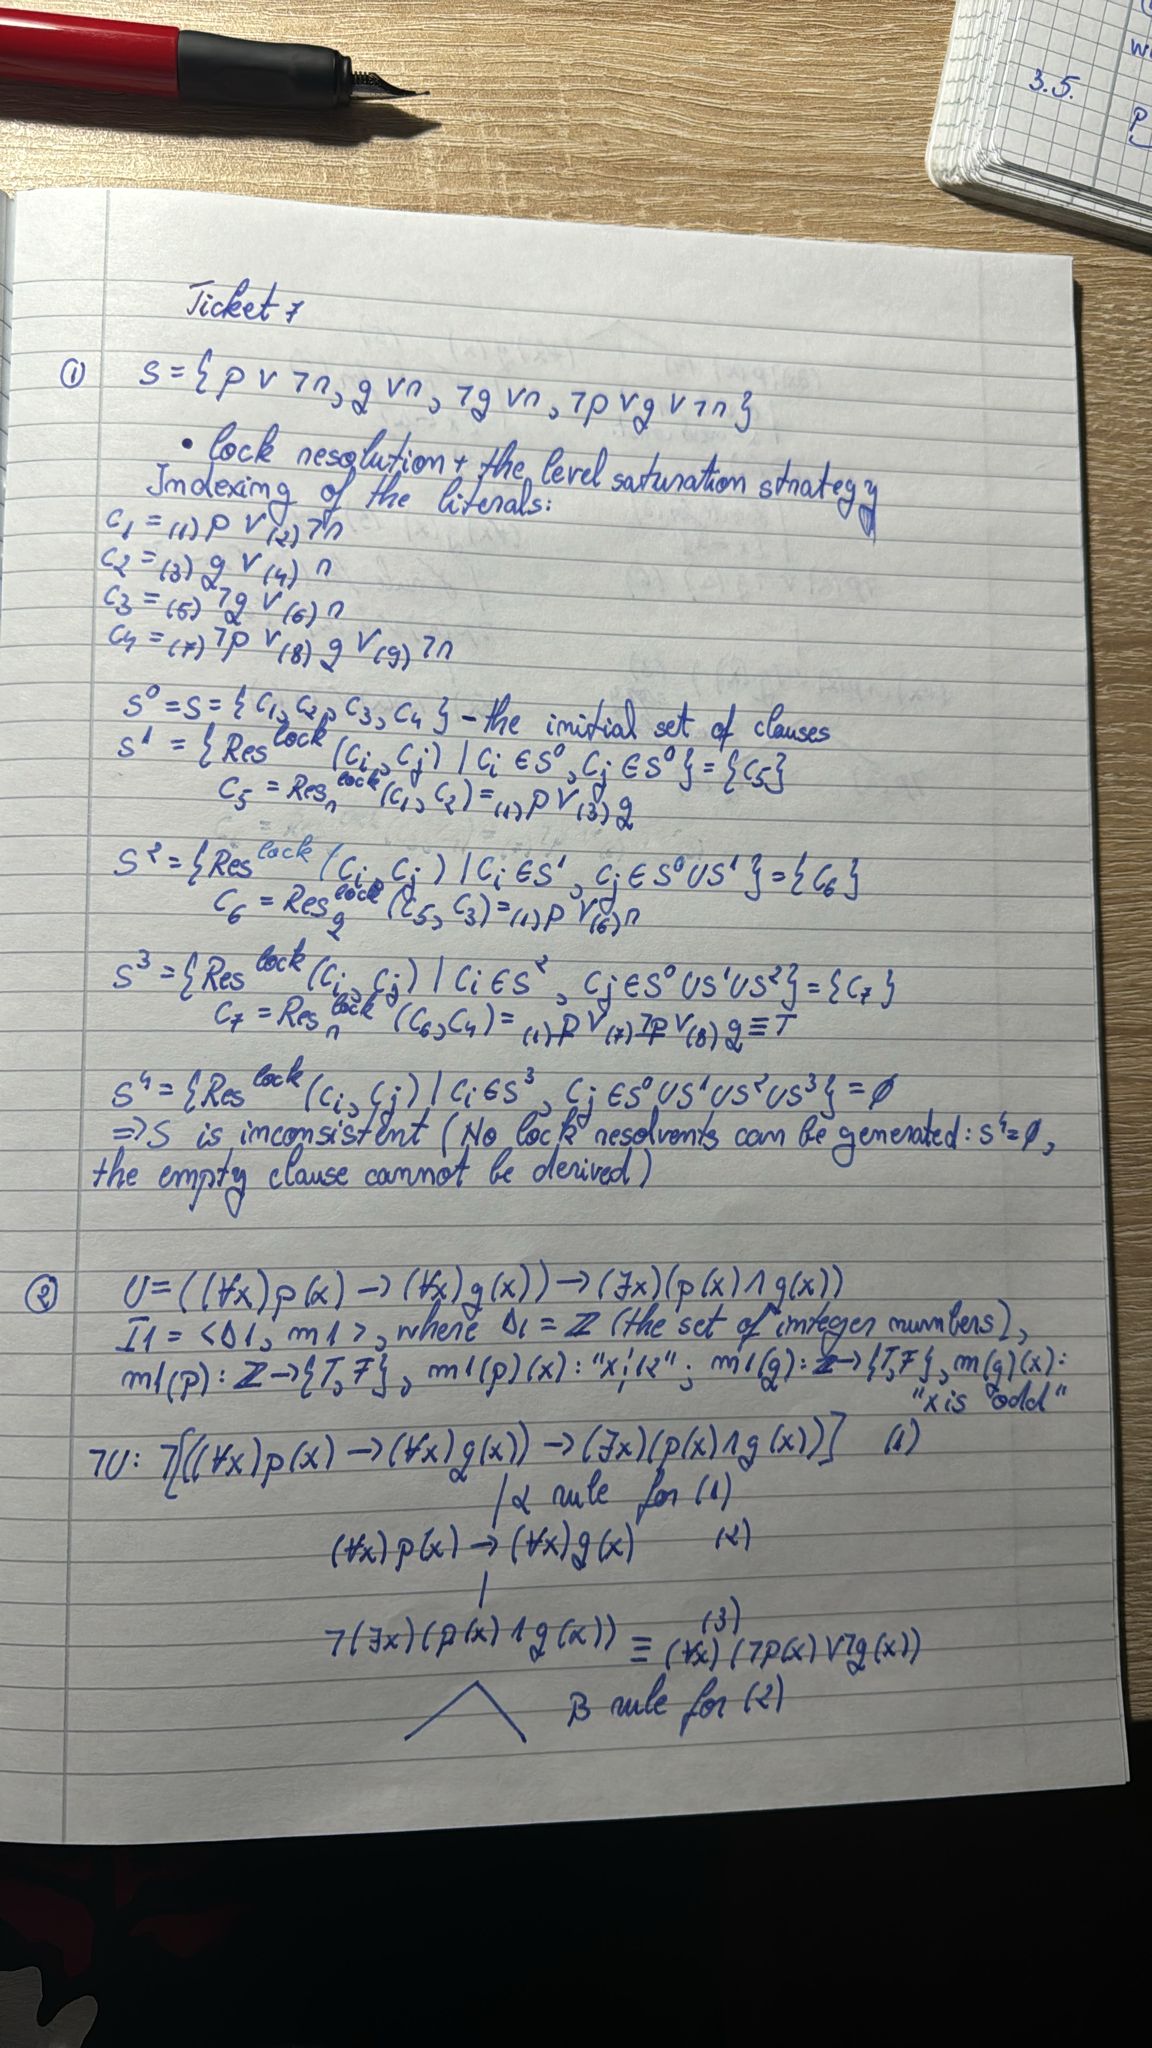 3.5.
Ticket 7
① S = { p ∨ ¬r, q ∨ r, ¬q ∨ r, ¬p ∨ q ∨ ¬r }
• lock resolution + the level saturation strategy
Indexing of the literals:
C1 = (1) p ∨ (2) ¬r
C2 = (3) q ∨ (4) r
C3 = (5) ¬q ∨ (6) r
C4 = (7) ¬p ∨ (8) q ∨ (9) ¬r
S⁰ = S = { C1, C2, C3, C4 } - the initial set of clauses
S¹ = { Res^lock (Ci, Cj) | Ci ∈ S⁰, Cj ∈ S⁰ } = { C5 }
C5 = Res_r^lock (C1, C2) = (1) p ∨ (3) q
S² = { Res^lock (Ci, Cj) | Ci ∈ S¹, Cj ∈ S⁰ ∪ S¹ } = { C6 }
C6 = Res_q^lock (C5, C3) = (1) p ∨ (6) r
S³ = { Res^lock (Ci, Cj) | Ci ∈ S², Cj ∈ S⁰ ∪ S¹ ∪ S² } = { C7 }
C7 = Res_r^lock (C6, C4) = (1) p ∨ (7) ¬p ∨ (8) q ≡ T
S⁴ = { Res^lock (Ci, Cj) | Ci ∈ S³, Cj ∈ S⁰ ∪ S¹ ∪ S² ∪ S³ } = ∅
=> S is inconsistent (No lock resolvents can be generated: S⁴ = ∅,
the empty clause cannot be derived)
② U = ((∀x) p(x) → (∀x) q(x)) → (∃x)(p(x) ∧ q(x))
I1 = <Δ1, m1>, where Δ1 = ℤ (the set of integer numbers),
m1(p): ℤ → {T, F}, m1(p)(x): "x⋮2"; m1(q): ℤ → {T, F}, m(q)(x):
"x is odd"
¬U: ¬[((∀x) p(x) → (∀x) q(x)) → (∃x)(p(x) ∧ q(x))] (1)
| α rule for (1)
(∀x) p(x) → (∀x) q(x) (2)
|
¬(∃x)(p(x) ∧ q(x)) ≡ (∀x)(¬p(x) ∨ ¬q(x)) (3)
β rule for (2)